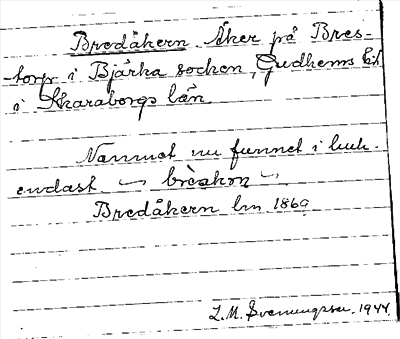 Bredåkern. Åker på Bres-
torp i Bjärka socken, Gudhems hd
i Skaraborgs län.
Namnet nu funnet i
endast
Bredåkern lm 1869
L.M. Svenungsson. 1944